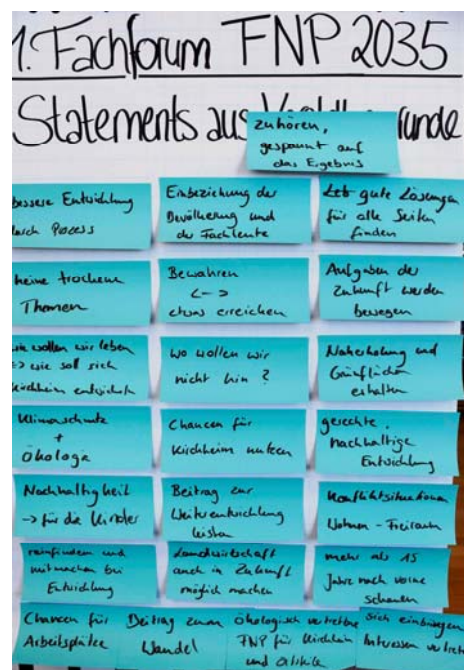 1. Fachforum FNP 2035
Statements aus
zuhören,
gespannt auf
das Ergebnis
bessere Entwicklung
durch Prozess
Einbeziehung der
Bevölkerung und
der Fachleute
gute Lösungen
für alle Seiten
finden
keine trockene
Themen
Bewahren
<-->
etwas erreichen
Aufgaben der
Zukunft werden
bewegen
wie wollen wir leben
-> wie soll sich
Kirchheim entwickeln
wo wollen wir
nicht hin?
Naherholung und
Grünflächen
erhalten
Klimaschutz
+
Ökologie
Chancen für
Kirchheim nutzen
gerechte,
nachhaltige
Entwicklung
Nachhaltigkeit
-> für die Kinder
Beitrag zur
Weiterentwicklung
leisten
Konfliktsituationen
Wohnen - Freiraum
reinfinden und
mitmachen bei
Entwicklung
Landwirtschaft
auch in Zukunft
möglich machen
mehr als 15
Jahre nach vorne
schauen
Chancen für
Arbeitsplätze
Beitrag zum
Wandel
Ökologisch vertretbare
FNP für Kirchheim
und
sich einbringen
Interessen